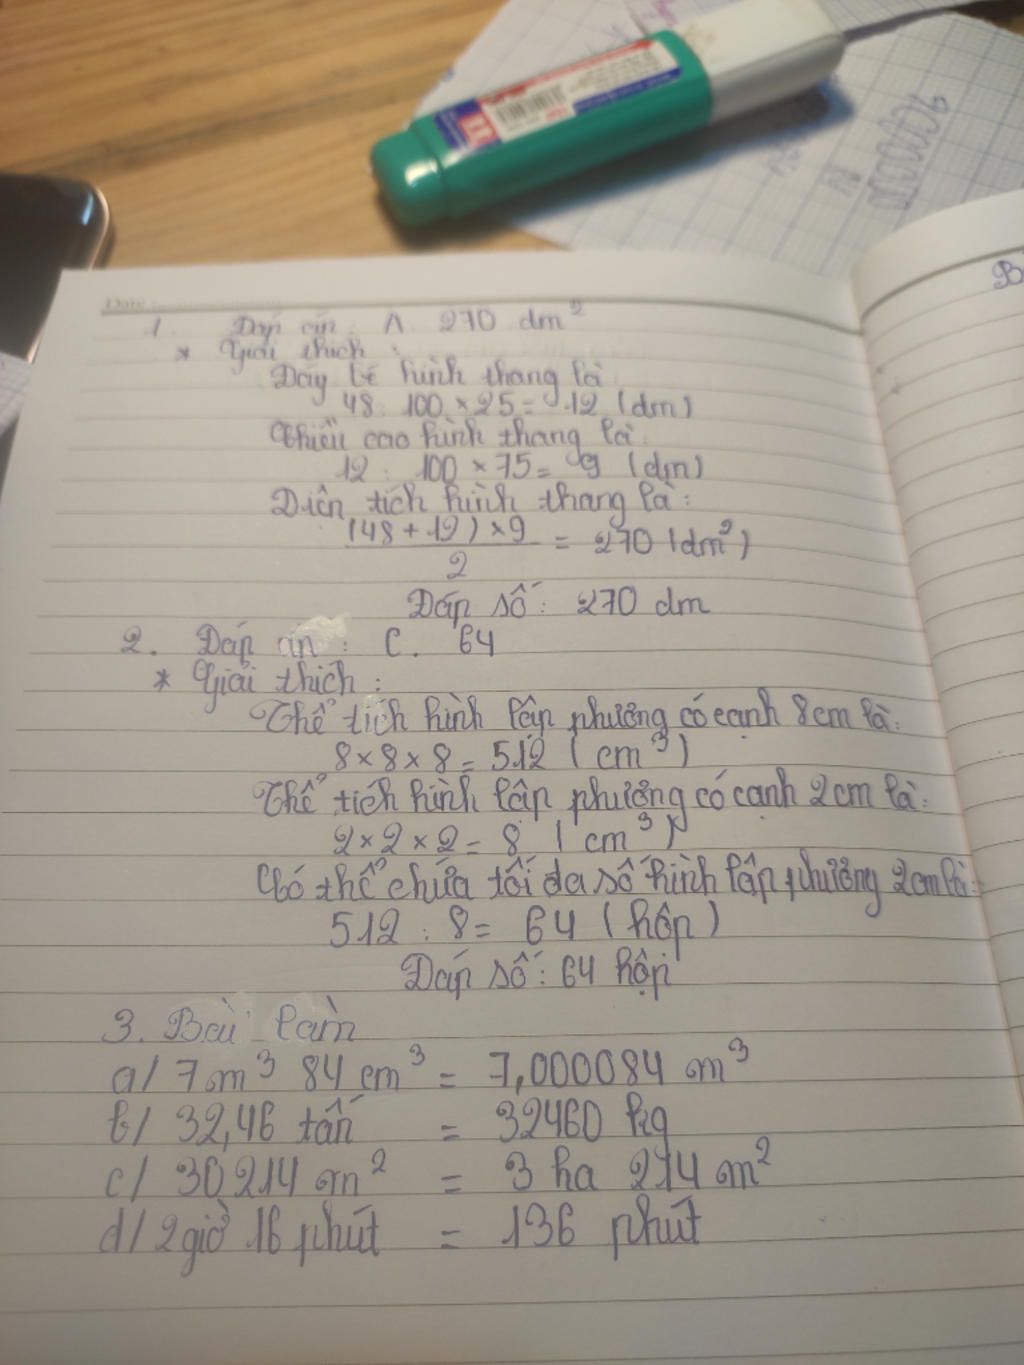 Date:
1. Đáp án: A. 270 dm²
* Giải thích:
Đáy bé hình thang là
48 : 100 × 25 = 12 (dm)
Chiều cao hình thang là:
12 : 100 × 75 = 9 (dm)
Diện tích hình thang là:
(48 + 12) × 9
= 270 (dm²)
2
Đáp số: 270 dm
2. Đáp án: C. 64
* Giải thích:
Thể tích hình lập phương có cạnh 8cm là:
8 × 8 × 8 = 512 (cm³)
Thể tích hình lập phương có cạnh 2cm là:
2 × 2 × 2 = 8 (cm³)
Có thể chứa tối đa số hình lập phương 2cm là:
512 : 8 = 64 (hộp)
Đáp số: 64 hộp
3. Bài làm
a/ 7m³ 84 cm³ = 7,000084 m³
b/ 32,46 tấn = 32460 kg
c/ 30 214 m² = 3 ha 214 m²
d/ 2 giờ 16 phút = 136 phút